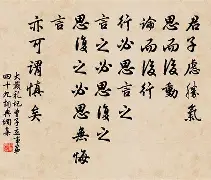 君子慮勝氣
思而後動
論而後行
行必思言之
言之必思復之
思復之必思無悔
言
亦可謂慎矣
大戴禮記曾子立事第
四十九訓典沺集